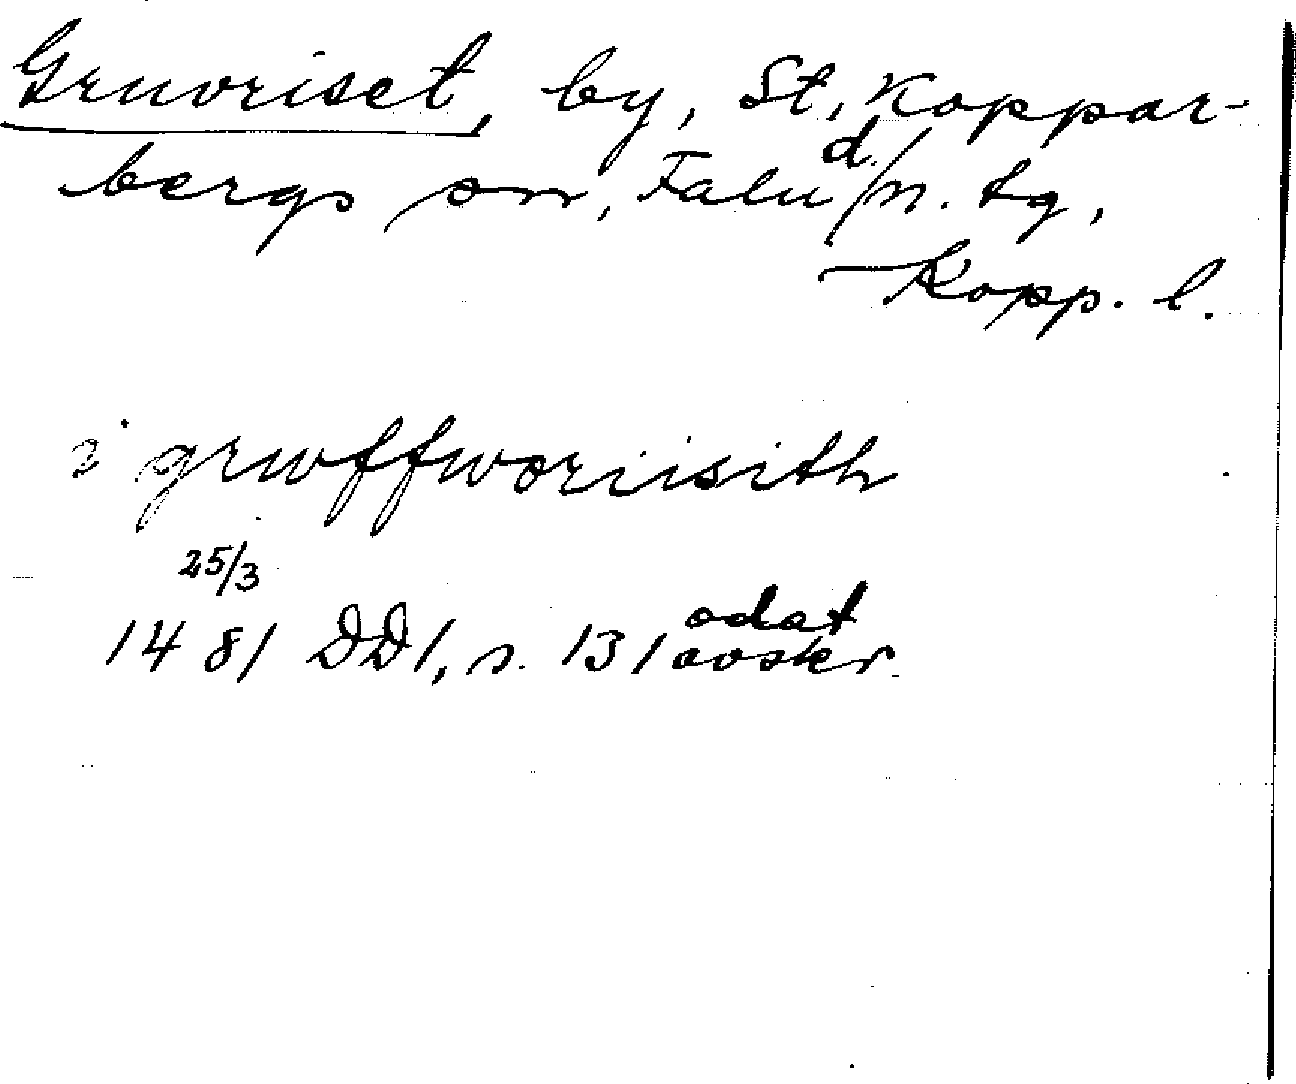 Gruvriset, by, St. Koppar-
bergs sn, Falu d./n. tg,
Kopp. l.
i grwffworiisith
25/3
1481 DD1, s. 131 odat
avskr.